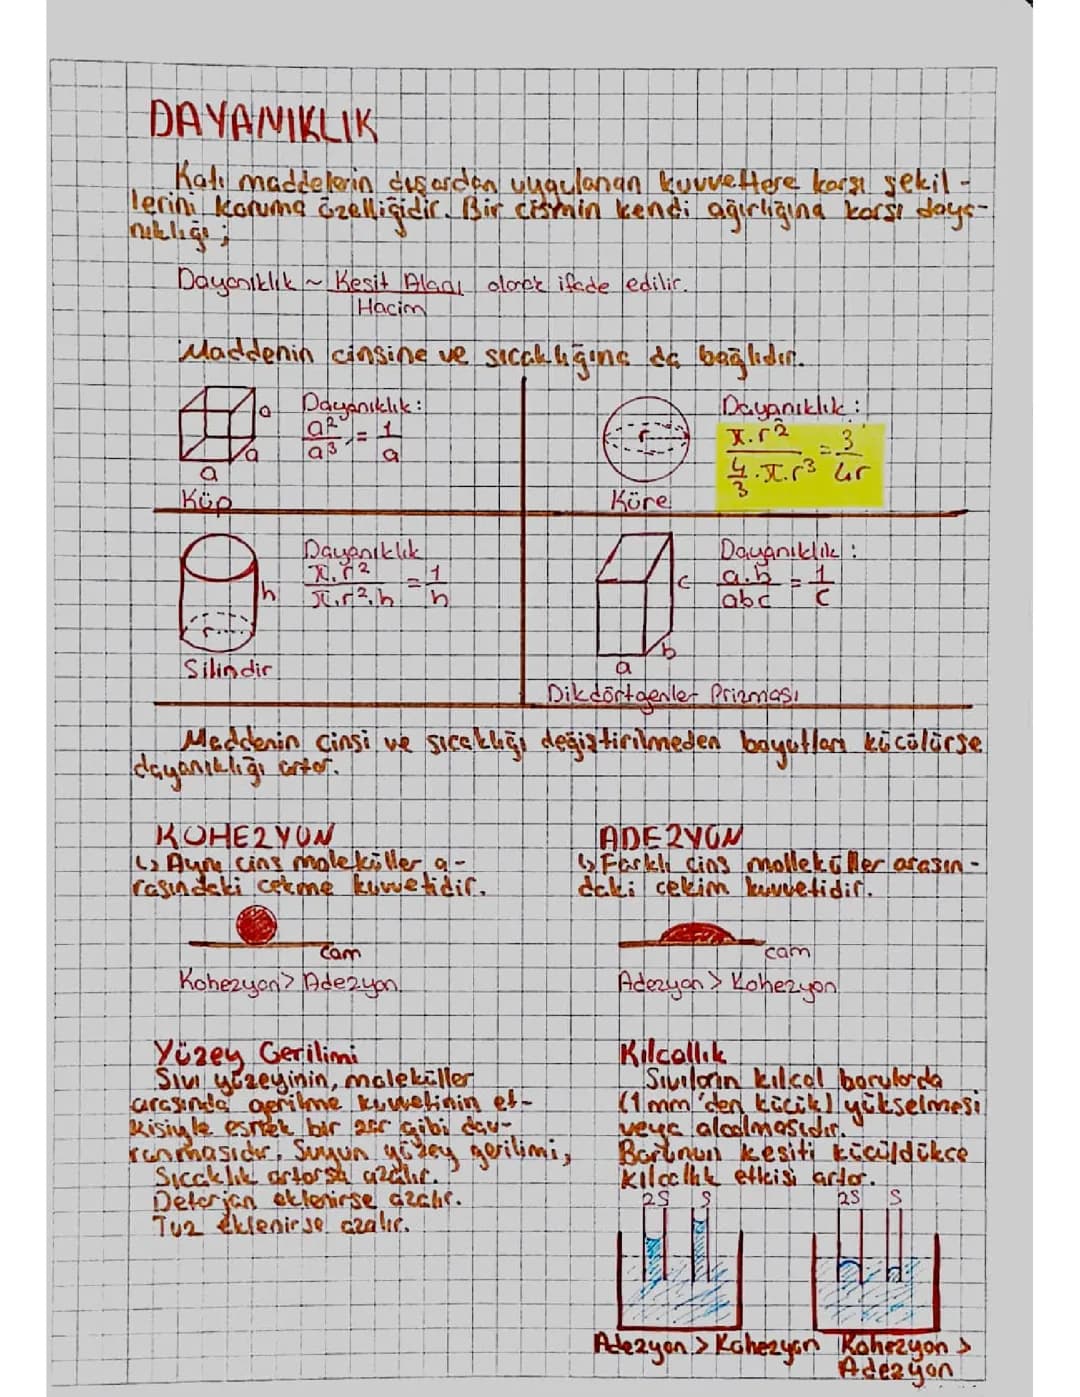 DAYANIKLIK
Katı maddelerin dışardan uygulanan kuvvetlere karşı şekil-
lerini koruma özelliğidir. Bir cismin kendi ağırlığına karşı daya-
nıklığı;
Dayanıklık ~ Kesit Alanı olarak ifade edilir.
Hacim
Maddenin cinsine ve sıcaklığına da bağlıdır.
a
a
a
Küp
Dayanıklık:
a² / a³ = 1 / a
r
Küre
Dayanıklık:
π.r² / 4/3.π.r³ = 3 / 4r
h
r
Silindir
Dayanıklık
π.r² / π.r².h = 1 / h
c
b
a
Dikdörtgenler Prizması
Dayanıklık:
a.b / abc = 1 / c
Maddenin cinsi ve sıcaklığı değiştirilmeden boyutları küçülürse
dayanıklığı artar.
KOHEZYON
↳ Aynı cins moleküller a-
rasındaki çekme kuvvetidir.
cam
Kohezyon > Adezyon
ADEZYON
↳ Farklı cins molleküller arasın-
daki çekim kuvvetidir.
cam
Adezyon > Kohezyon
Yüzey Gerilimi
Sıvı yüzeyinin, moleküller
arasında gerilme kuvvetinin et-
kisiyle esnek bir zar gibi dav-
ranmasıdır. Suyun yüzey gerilimi;
Sıcaklık artarsa azalır.
Deterjan eklenirse azalır.
Tuz eklenirse azalır.
Kılcallık
Sıvıların kılcal borularda
(1 mm'den küçük) yükselmesi
veya alçalmasıdır.
Borunun kesiti küçüldükçe
kılcallık etkisi artar.
2S S
2S S
Adezyon > Kohezyon
Kohezyon >
Adezyon